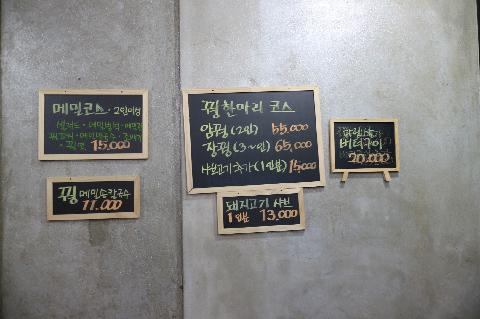 메밀코스 · 2인이상
샐러드 · 메밀빙떡 · 메밀전
15,000
꿩 메밀손칼국수
11,000
꿩 한마리 코스
암꿩 (2인) 55,000
장꿩 (3~인) 65,000
추가 (1인분) 15,000
돼지고기 샤브
1인분 13,000
버터구이
20,000